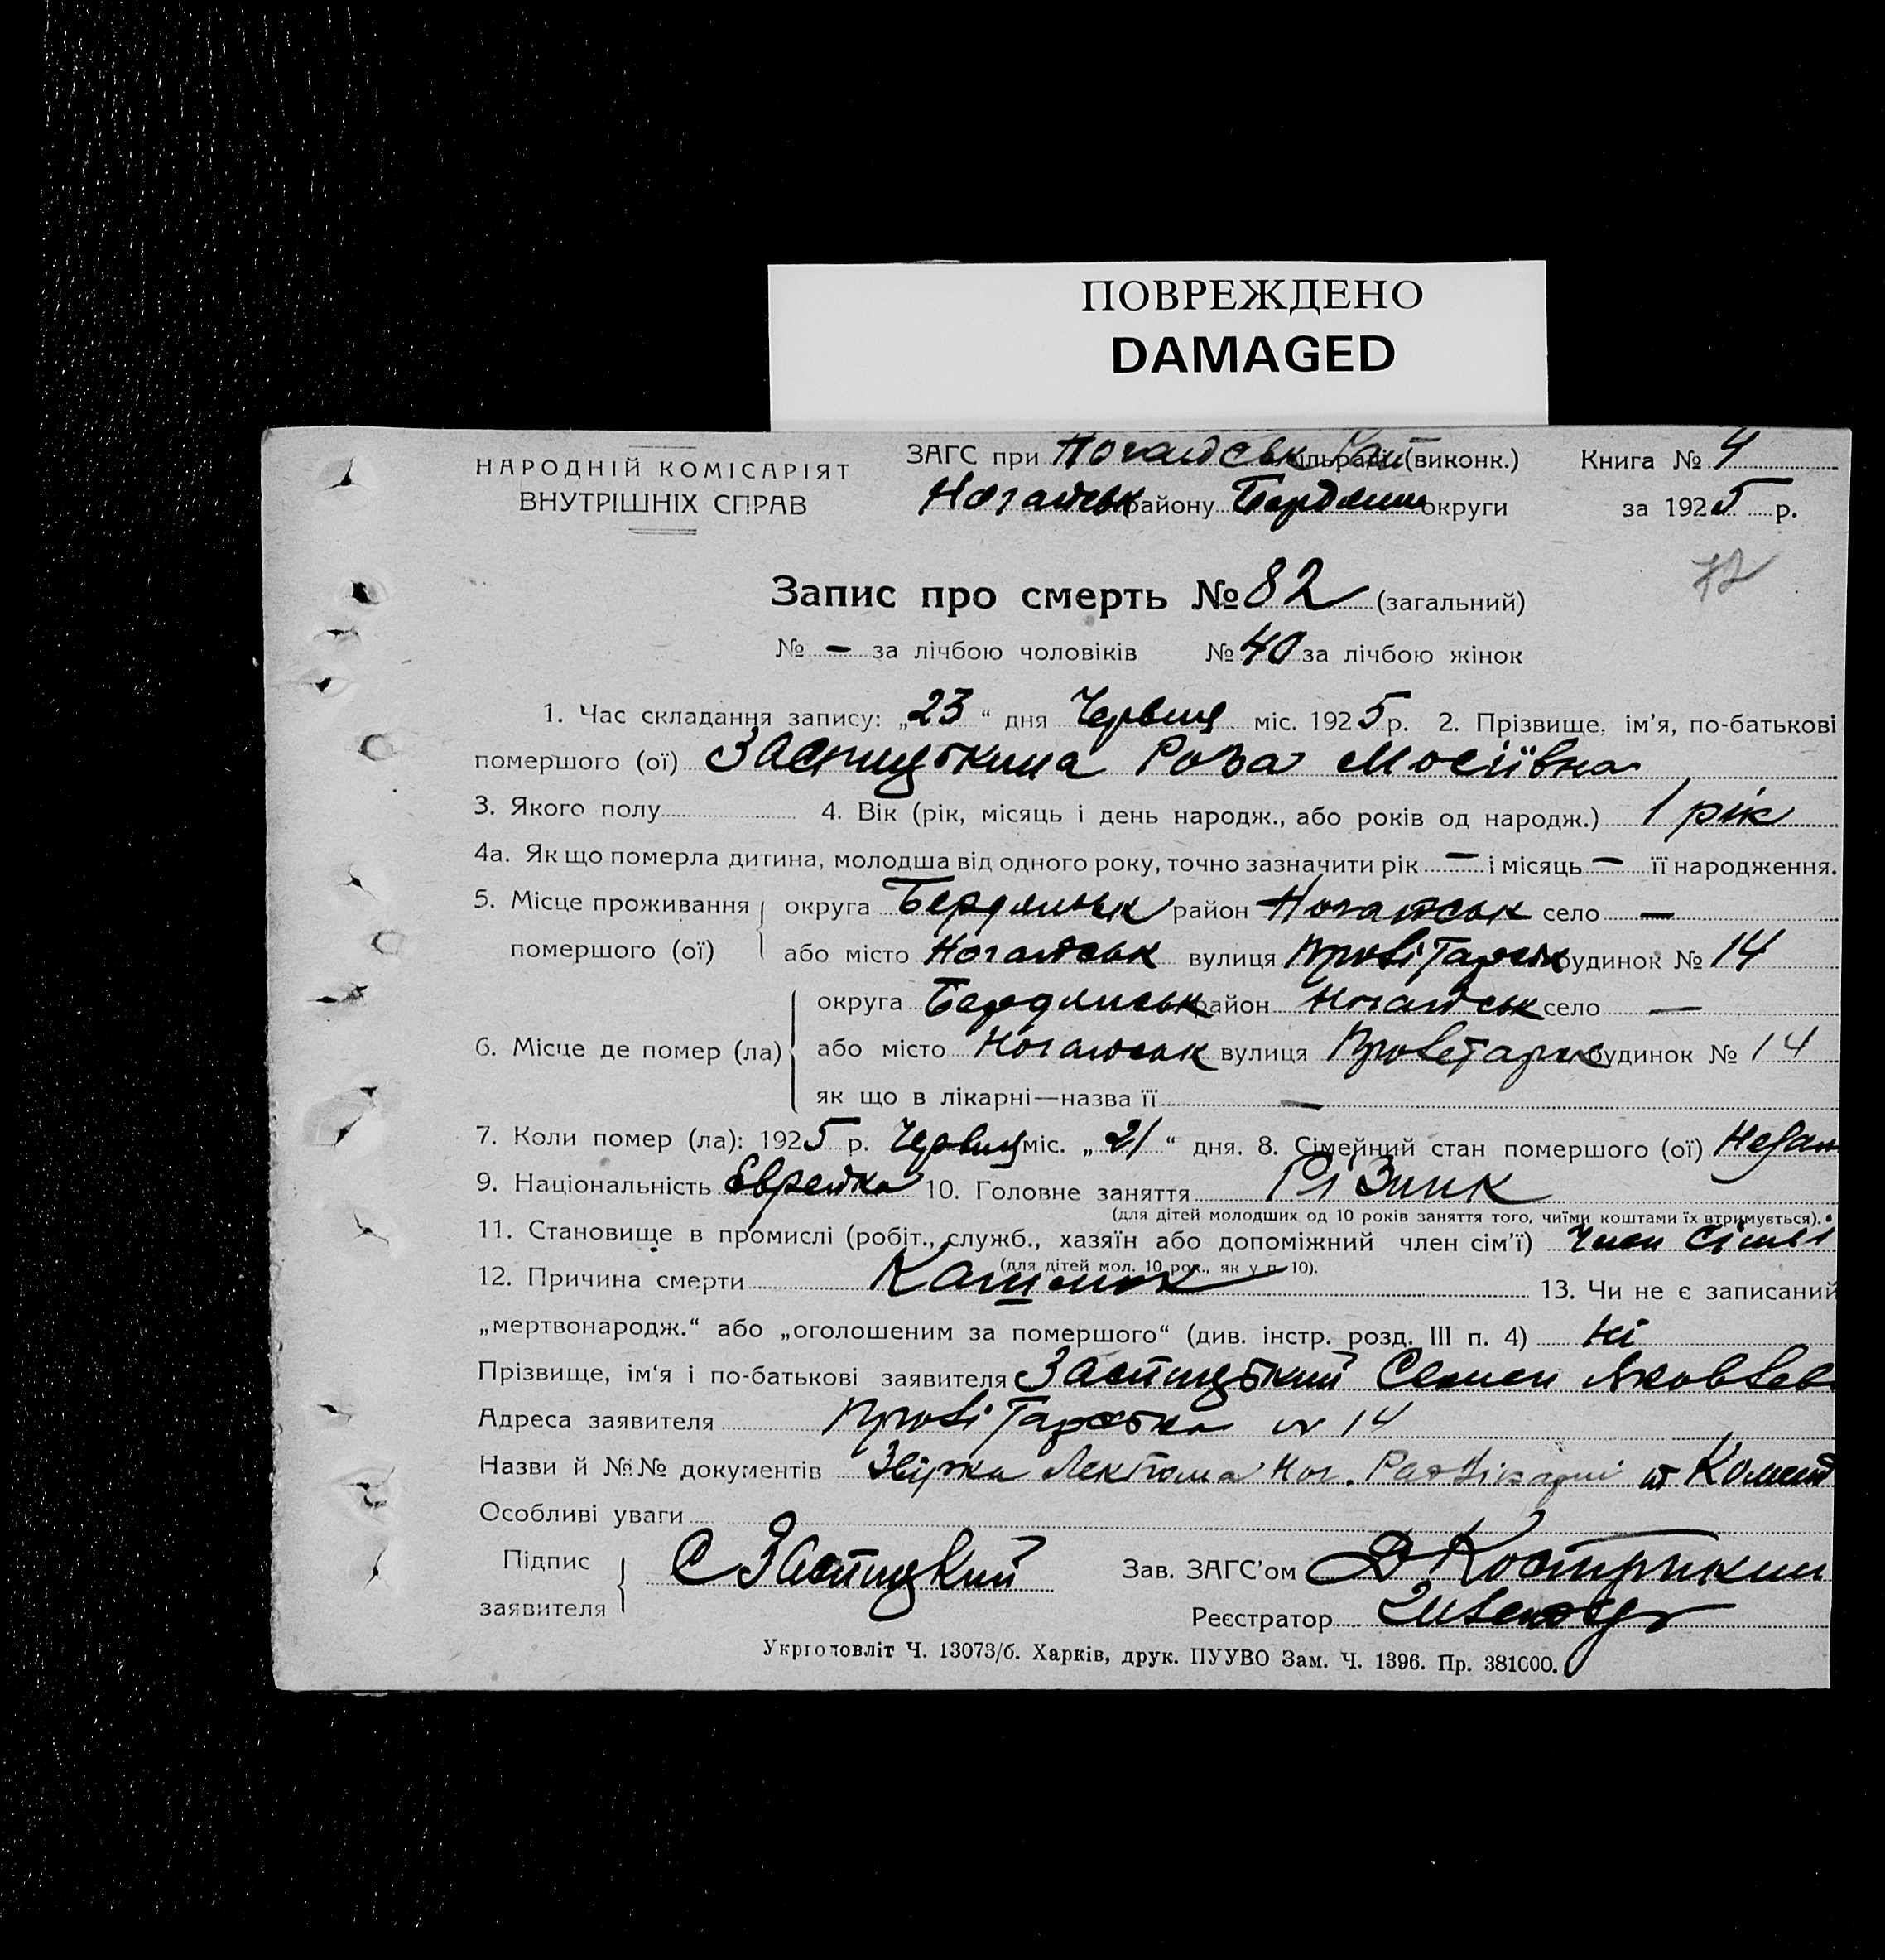 ПОВРЕЖДЕНО
DAMAGED
НАРОДНІЙ КОМІСАРІЯТ
ВНУТРІШНІХ СПРАВ
ЗАГС при Ногайськ сільраді (виконк.)
Книга № 4
Ногайськ району Бердянськ округи
за 1925 р.
72
Запис про смерть № 82 (загальний)
№ — за лічбою чоловіків № 40 за лічбою жінок
1. Час складання запису: „23“ дня Червця міс. 1925 р. 2. Прізвище, ім'я, по-батькові
помершого (ої) Роза Мосіївна
3. Якого полу 4. Вік (рік, місяць і день народж., або років од народж.) 1 рік
4а. Як що померла дитина, молодша від одного року, точно зазначити рік — і місяць — її народження.
5. Місце проживання округа Бердянськ район Ногайськ село —
помершого (ої) або місто Ногайськ вулиця будинок № 14
округа Бердянськ район Ногайськ село —
6. Місце де помер (ла) або місто Ногайськ вулиця будинок № 14
як що в лікарні—назва її —
7. Коли помер (ла): 1925 р. Червця міс. „21“ дня. 8. Сімейний стан помершого (ої)
9. Національність Еврейка 10. Головне заняття Різник
(для дітей молодших од 10 років заняття того, чиїми коштами їх втримується).
11. Становище в промислі (робіт., служб., хазяїн або допоміжний член сім'ї) Член Сімьі
(для дітей мол. 10 рок., як у п. 10).
12. Причина смерти Кашлюк 13. Чи не є записаний
„мертвонародж.“ або „оголошеним за помершого“ (див. інстр. розд. III п. 4) Ні
Прізвище, ім'я і по-батькові заявителя Семен Яковлев
Адреса заявителя № 14
Назви й №№ документів
Особливі уваги
Підпис
заявителя
Зав. ЗАГС'ом Кострикин
Реєстратор
Укрголовліт Ч. 13073/б. Харків, друк. ПУУВО Зам. Ч. 1396. Пр. 381000.